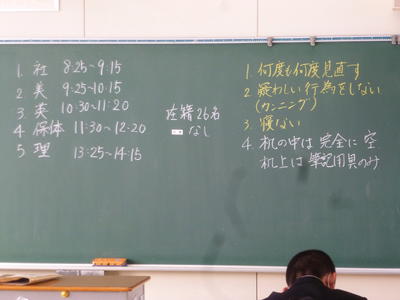 1. 社 8:25~9:15
2 美 9:25~10:15
3 英 10:30~11:20
4 保体 11:30~12:20
5 理 13:25~14:15
在籍26名
なし
1. 何度も何度見直す
2 疑わしい行為をしない
(カンニング)
3. 寝ない
4. 机の中は完全に空
机上は筆記用具のみ